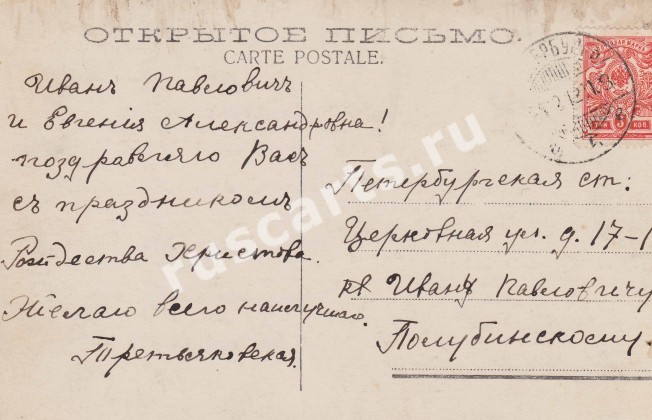 ОТКРЫТОЕ ПИСЬМО.
CARTE POSTALE.
Иванъ Павловичъ
и Евгенія Александровна!
поздравляю Васъ
съ праздникомъ
Рождества Христова.
Желаю всего наилучшаго.
Третьяковская.
Петербургская ст:
Церковная ул. д. 17-1
кв Ивану Павловичу
Полубинскому.
3 КОП.
ruscarts.ru